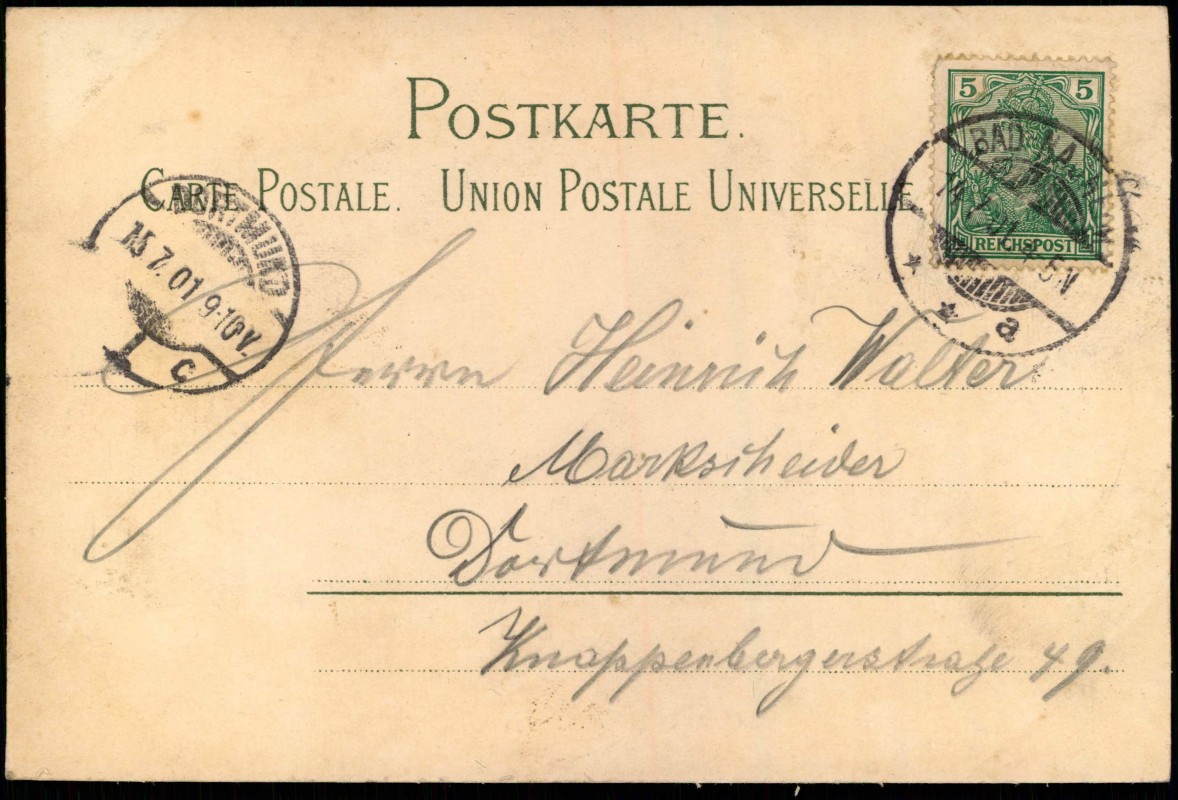 POSTKARTE.
CARTE POSTALE. UNION POSTALE UNIVERSELLE
5 5
REICHSPOST
BAD
5N
a
DORTMUND
15.7.01 9-10V.
c
Herrn Heinrich Walter
Markscheider
Dortmund
Knappenbergerstraße 49.